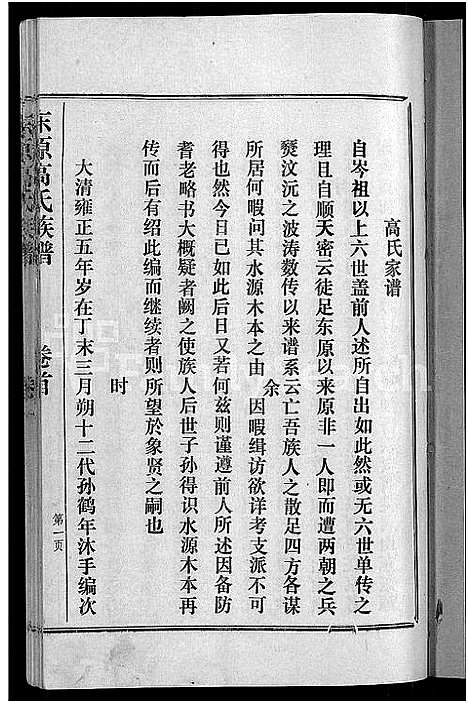 高氏家谱
自岑祖以上六世盖前人述所自出如此然或无六世单传之
理且自顺天密云徒足东原以来原非一人即而遭两朝之兵
燹汶沉之波涛数传以来谱系云亡吾族人之散足四方各谋
所居何暇问其水源木本之由 余 因暇缉访欲详考支派不可
得也然今日已如此后日又若何兹则谨遵前人所述因备防
耆老略书大概疑者阙之使族人后世子孙得识水源木本再
传而后有绍此编而继续者则所望於象贤之嗣也
时
大清雍正五年岁在丁末三月朔十二代孙鹤年沐手编次
东原高氏族谱 卷首
第一页